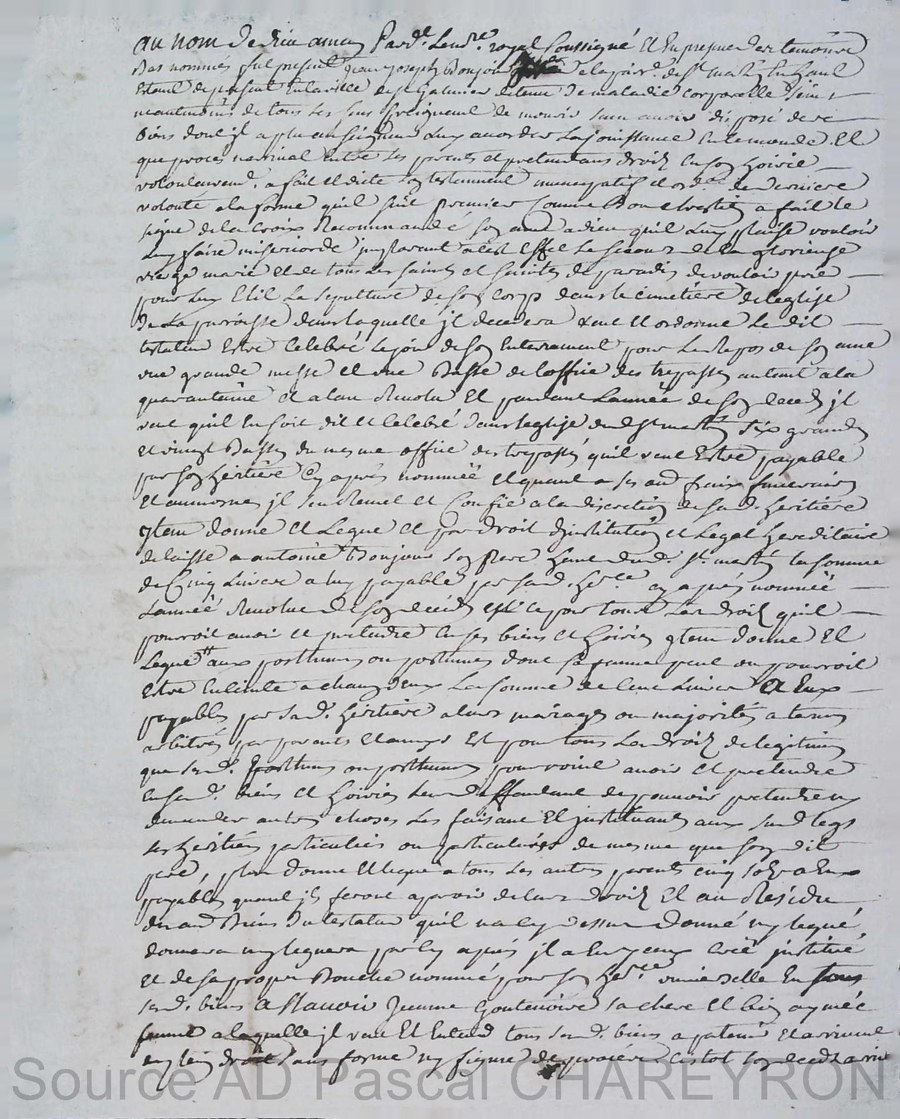 au nom de dieu amen Pard.t Le no.re royal soussigné Et En presence des temoins
Bas nommés fut present Jean Joseph Boujou de la par.e de St martin En haul
Estant de present En la ville de St Galmier detenu de maladie corporelle sein
neantmoins de tous ses sens Craigneul de mourir sans avoir disposé de ce
Biens dont jl a plu au seigneur Luy acorder La jouissance En ce monde Et
que proces nai nal Entre ses parents et pretendans droit En son hoirie
volontairem.t a fait et dicté son testament nuncupatif et ord.ce de derniere
volonté a la forme qu'il suit premier Comme Bon Chrestien a fait le
signe de la Croix Recommandé son ame a dieu qu'il Luy plaise vouloir
Luy faire misericorde implorant a cest Effet Le secours de La glorieuse
vierge marie Et de tous Les saints et saintes de paradis de vouloir prie
pour Luy Elit La sepulture de son Corps dans le cimetiere de l'eglise
de La parroisse dans laquelle jl decedera veut Et ordonne Le dit
testateur Estre Celebré le jour de son Enterrement pour Le Repos de son ame
une grande messe et une Basse de l'office des trepassés autant a la
quarantaine et a l'an Revolu Et pendant L'année de son deceds jl
veut qu'il En soit dit et Celebré dans l'eglise dud St martin six grandes
et vingt Basses du mesme office des trepassés qu'il veut Estre payable
par son heritiere Cy apres nommée et quant a ses au frais funeraires
Et aumosnes jl s'en Remet et Confie a la discretion de sa d. heritiere
jtem donne Et Legue Et par droit d'jnstitution et Legat hereditaire
delaisse a antoine Boujou son Pere dud. St martin la somme
de Cinq Livres a luy payable par sa d. her.re cy apres nommée
L'année Revolue de son deceds Et Ce pour tous Les droits qu'il
pourroit avoir et pretendre En ses biens et hoirie jtem donne Et
Legue aux posthumes ou posthumes dont sa femme peut ou pourroit
Estre Enceinte a chacun d'eux La somme de Livres a Eux
payables par sa d. heritiere a leurs mariages ou majorités a termes
arbitrés par parents Et amys Et pour tous Les droits de legitime
que sesd. posthumes ou posthumes pourroient avoir et pretendre
En sesd. biens Et hoirie Leur deffendant de pouvoir pretendre ny
demander autres choses Les faisant Et jnstituant aux susd legs
ses heritiers particuliers ou particulieres de mesme que son dit
pere, plus donne Et legue a tous ses autres parents cinq sols a Eux
payables quand jls feront aparoir de leurs droits Et au Residu
des aud Biens du testateur qu'il n'a Cy dessus donné ny legué,
donnera ny leguera par Cy apres jl a Luy Creé jnstitué
et de sa propre Bouche nommé pour son her.re universelle En tous
sesd. biens a scavoir Jeanne Goutenoire sa chere Et bien aymée
femme a laquelle jl veut Et Entend tous sesd. biens apartenir Et arriver
en plein droit sans forme ny figure de proces Et tost son deceds arrivé
Source AD Pascal CHAREYRON